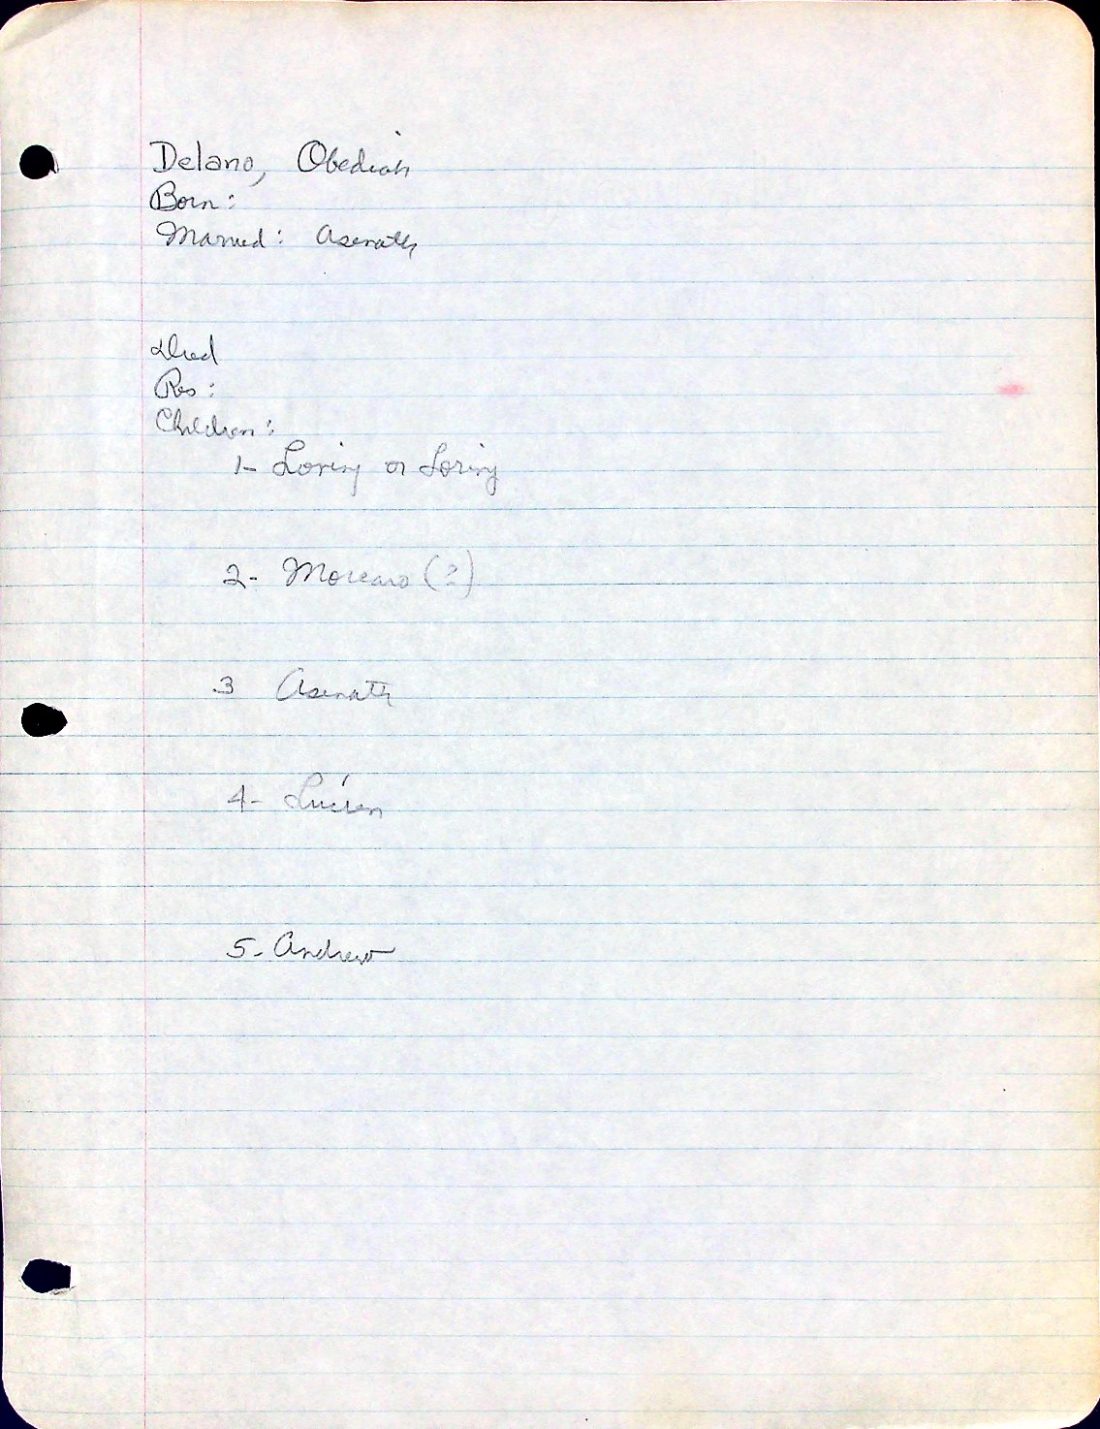 Delano, Obediah
Born:
Married: Asenath
Died
Res:
Children:
1- Loring or Soring
2- Morearo (?)
3 Asenath
4- Lucien
5- Andrew